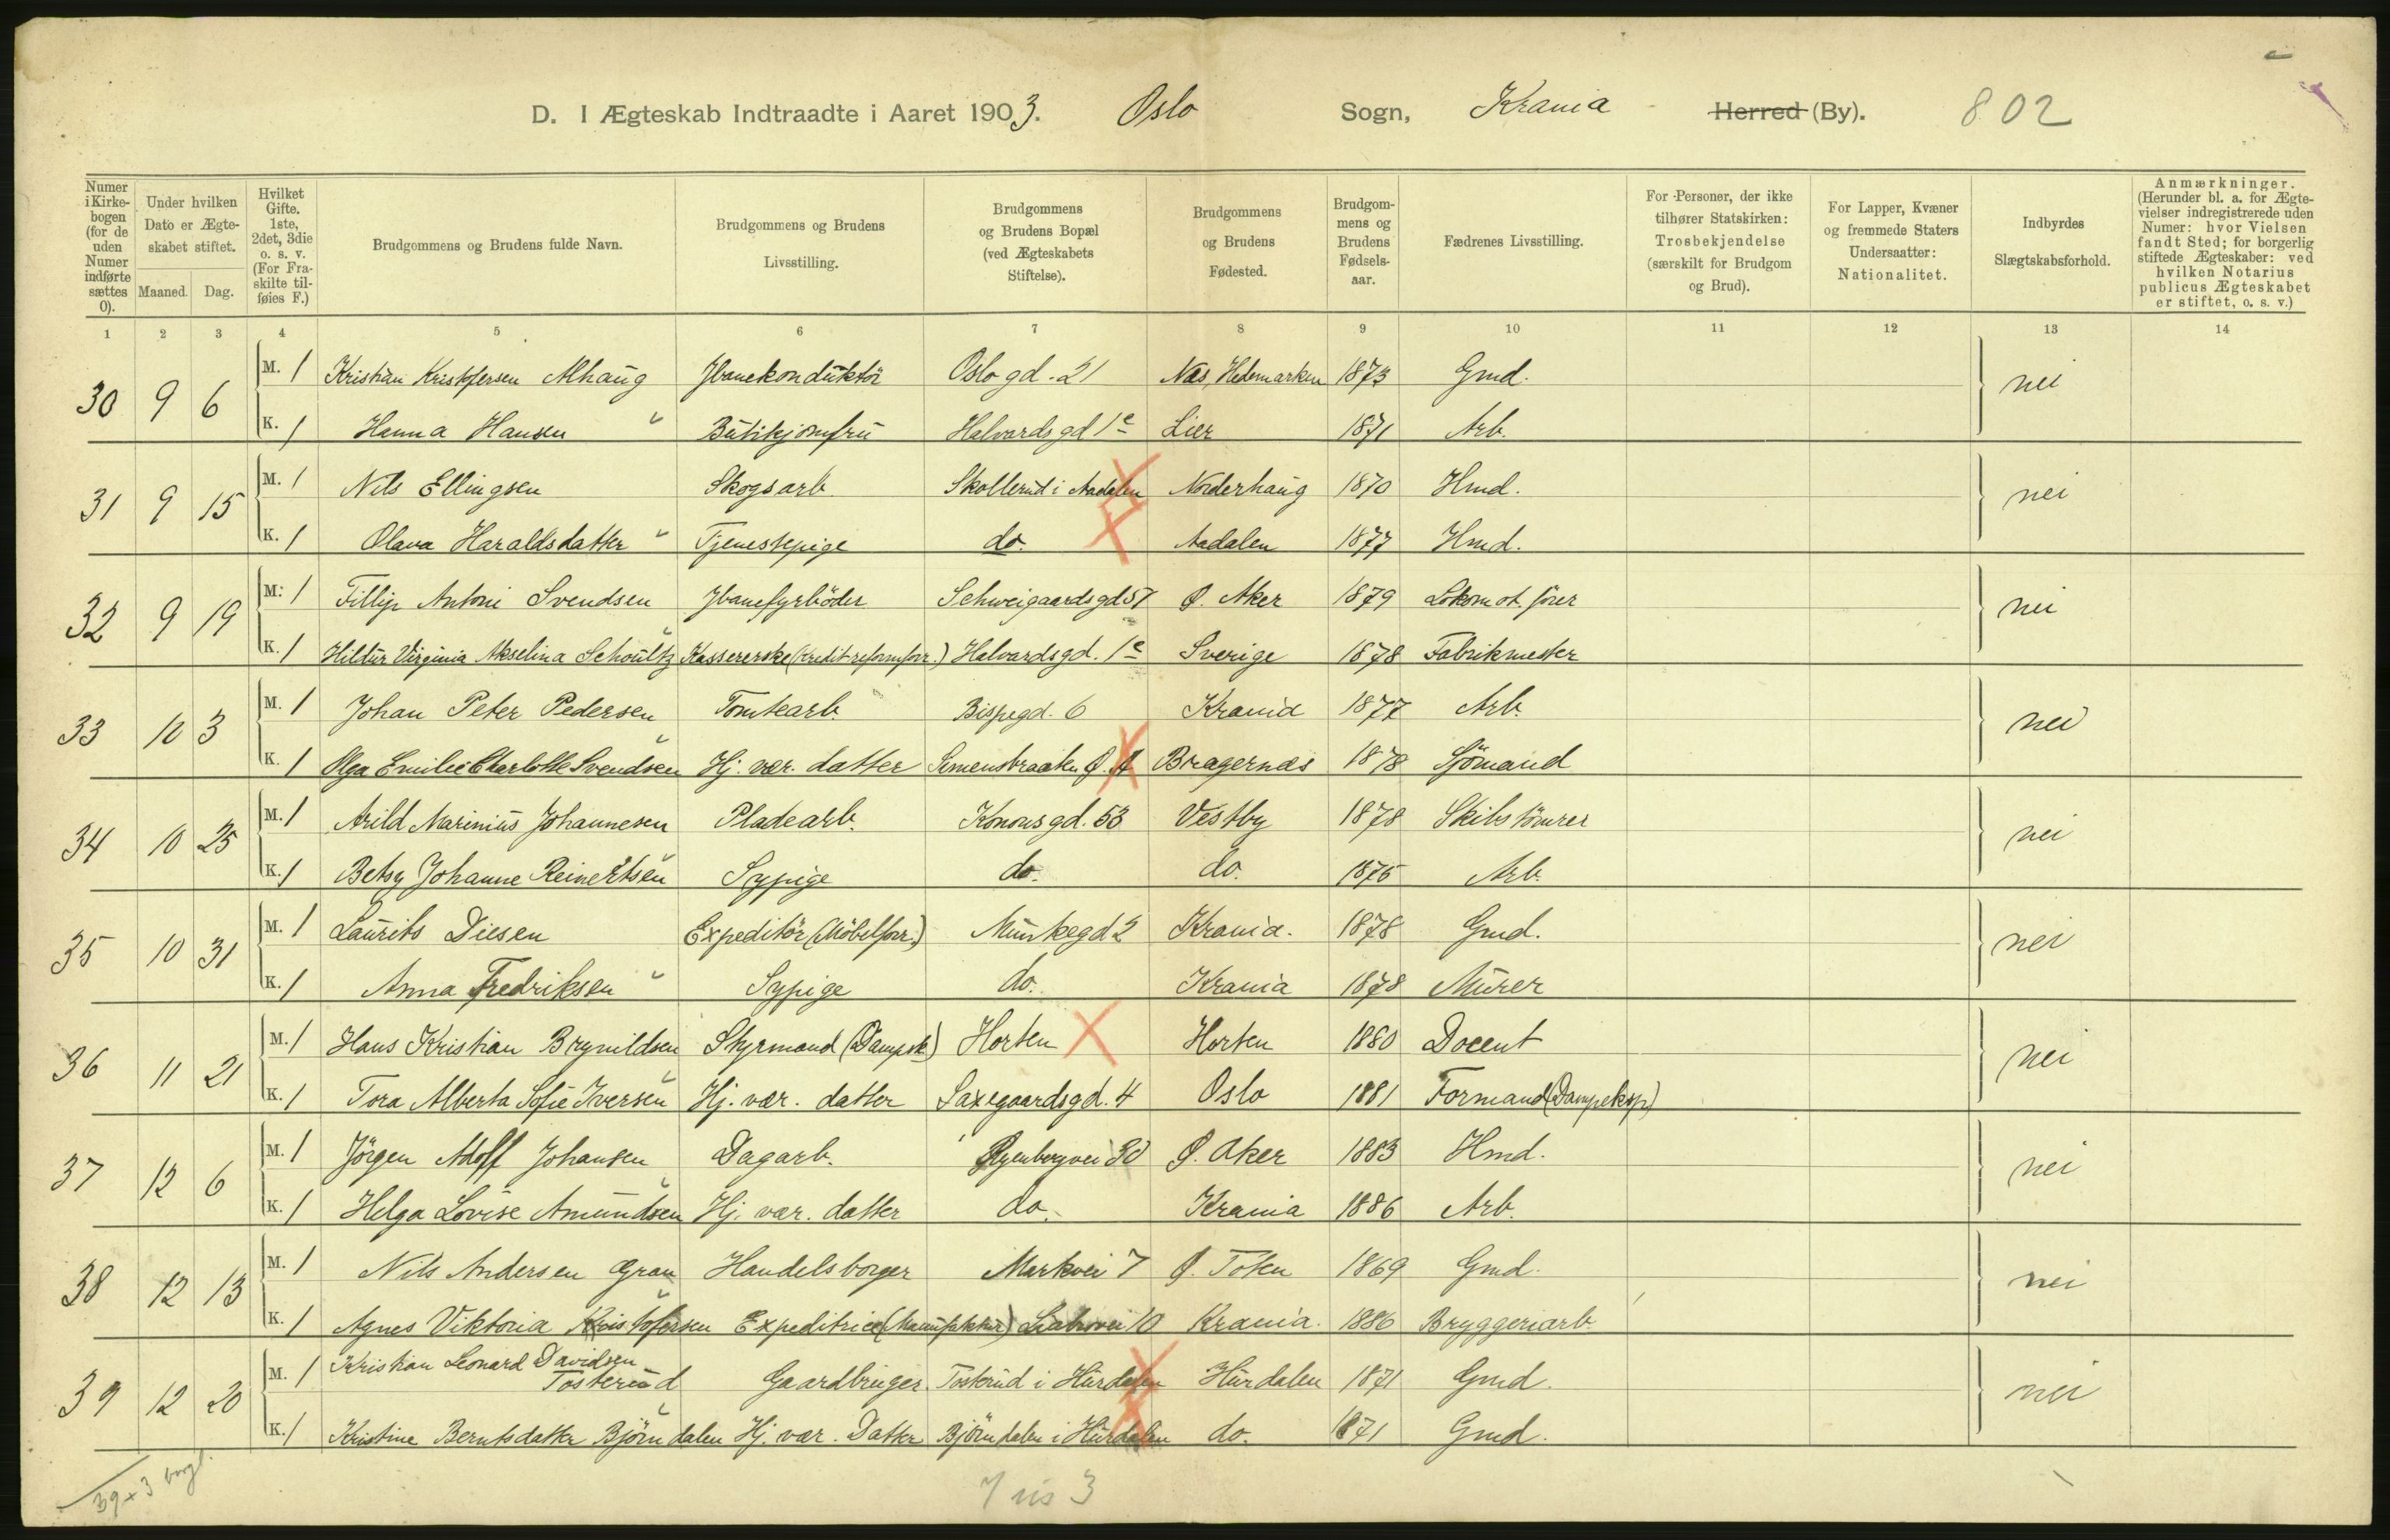 D. I Ægteskab Indtraadte i Aaret 1903. Oslo Sogn, Krania Herred (By). 802
Numer i Kirkebogen (for de uden Numer indførte sættes 0). Under hvilken Dato er Ægteskabet stiftet. Maaned. Dag. Hvilket Gifte. 1ste, 2det, 3die o. s. v. (For Fraskilte tilføies F.) Brudgommens og Brudens fulde Navn. Brudgommens og Brudens Livsstilling. Brudgommens og Brudens Bopæl (ved Ægteskabets Stiftelse). Brudgommens og Brudens Fødested. Brudgommens og Brudens Fødselsaar. Fædrenes Livsstilling. For Personer, der ikke tilhører Statskirken: Trosbekjendelse (særskilt for Brudgom og Brud). For Lapper, Kvæner og fremmede Staters Undersaatter: Nationalitet. Indbyrdes Slægtskabsforhold. Anmærkninger. (Herunder bl. a. for Ægtevielser indregistrerede uden Numer: hvor Vielsen fandt Sted; for borgerlig stiftede Ægteskaber: ved hvilken Notarius publicus Ægteskabet er stiftet, o. s. v.)
1 2 3 4 5 6 7 8 9 10 11 12 13 14
30 9 6 M. 1 Kristian Kristofersen Alhaug Jbanekonduktör Oslogd. 21 Næs, Hedemarken 1873 Gmd. nei
K. 1 Hanna Hansen Butikjomfru Halvardsgd 1c Lier 1871 Arb.
31 9 15 M. 1 Nils Ellingsen Skogsarb. Skollerud i Aadalen Norderhaug 1870 Hmd. nei
K. 1 Olava Haraldsdatter Tjenestepige do. Aadalen 1877 Hmd.
32 9 19 M. 1 Fillip Antoni Svendsen Jbanefyrböder Schweigaardsgd 57 Ø. Aker 1879 Lokomot. förer nei
K. 1 Hildur Virginia Akselina Schoultz Kassererske (Kreditreformforr.) Halvardsgd. 1c Sverige 1878 Fabrikmester
33 10 3 M. 1 Johan Peter Pedersen Tomtearb. Bispegd. 6 Krania 1877 Arb. nei
K. 1 Olga Emilie Charlotte Svendsen Hj. vær. datter Simensbraaten Ø. A Bragernæs 1878 Sjömand
34 10 25 M. 1 Arild Marinius Johannesen Pladearb. Konowsgd. 53 Vestby 1878 Skibstömrer nei
K. 1 Betsy Johanne Reinertsen Sypige do. do. 1875 Arb.
35 10 31 M. 1 Laurits Diesen Expeditör (Möbelforr.) Munkegd 2 Krania. 1878 Gmd. nei
K. 1 Anna Fredriksen Sypige do. Krania 1878 Murer
36 11 21 M. 1 Hans Kristian Brynildsen Styrmand (Dampsk) Horten Horten 1880 Docent nei
K. 1 Tora Alberta Sofie Iversen Hj. vær. datter Saxegaardsgd. 4 Oslo 1881 Formand (Dampeksp)
37 12 6 M. 1 Jörgen Adolf Johansen Dagarb. Ryenbergvei 30 Ø. Aker 1883 Hmd. nei
K. 1 Helga Lovise Amundsen Hj. vær. datter do. Krania 1886 Arb.
38 12 13 M. 1 Nils Andersen Gran Handelsborger Markvei 7 Ø. Toten 1869 Gmd. nei
K. 1 Agnes Viktoria Kristofersen Expeditrice (Manufaktur) Liabrovei 10 Krania. 1886 Bryggeriarb.
39 12 20 M. 1 Kristian Leonard Davidsen
Tosterud Gaardbruger Tosterud i Hurdalen Hurdalen 1871 Gmd. nei
K. 1 Kristine Berntsdatter Björndalen Hj. vær. Datter Björndalen i Hurdalen do. 1871 Gmd.
39 + 3 borgl.